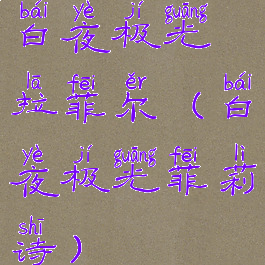 bái yè jí guāng
白夜极光
lā fēi ěr bái
拉菲尔（白
yè jí guāng fēi lì
夜极光菲莉
shī
诗）